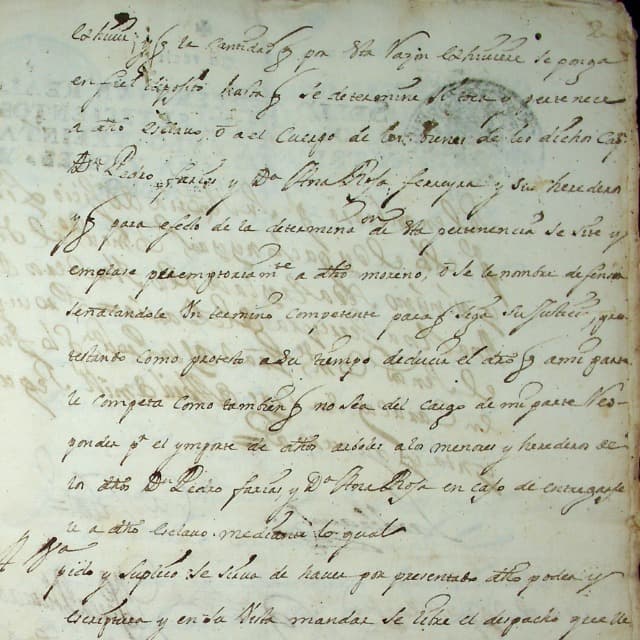 la huui y q̃ la cantidad q̃ por esta Razon la huuiere se ponga
en fiel deposito hasta q̃ se determine si toca o pertenece
a dho esclavo, o a el Cuerpo de los bienes de los dichos Cap
Dn Pedro farias y Da Ana Rosa ferreyra y sus herederos
y q̃ para efecto de la determinaon de esta pertenencia se site y
emplase peremptoriamte a dho moreno, o se le nombre defensor
señalandole Un termino competente para q̃ siga su Justicia, pro
testando como protesto a su tiempo deducir el dro q̃ a mi parte
le competa como tambien q̃ no sea del cargo de mi parte Res-
ponder pr el ymporte de dhos arboles a los menores y herederos de
los dhos Dn Pedro farias y Da Ana Rosa en caso de entregarse
le a dho esclavo mediante lo qual
A Va
pido y suplico se sirva de haver por presentado dho poder y
escriptura y en su Vista mandar se libre el despacho que lle